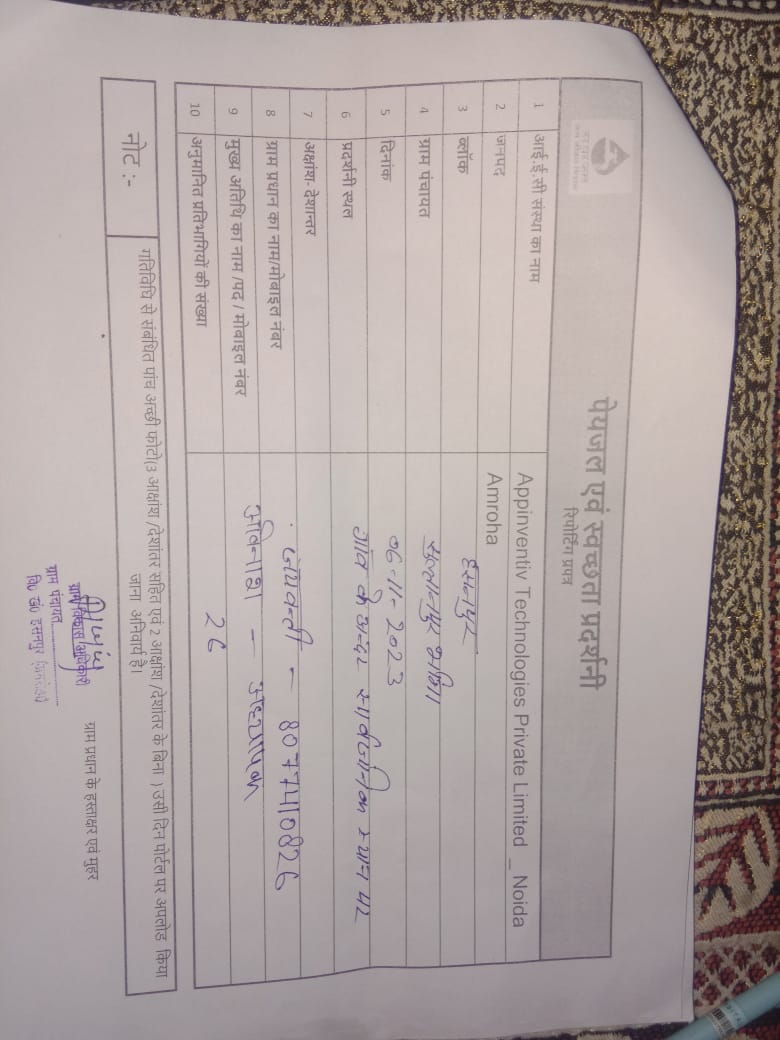 पेयजल एवं स्वच्छता प्रदर्शनी
रिपोर्टिंग प्रपत्र
1 आई.ई.सी संस्था का नाम Appinventiv Technologies Private Limited _ Noida
2 जनपद Amroha
3 ब्लॉक हसनपुर
4 ग्राम पंचायत सुल्तानपुर
5 दिनांक 06-11-2023
6 प्रदर्शनी स्थल गांव के अन्दर सार्वजनिक स्थान पर
7 अक्षांश- देशान्तर
8 ग्राम प्रधान का नाम/मोबाइल नंबर जयवन्ती - 8077410826
9 मुख्य अतिथि का नाम /पद / मोबाइल नंबर अविनाश - अध्यापक
10 अनुमानित प्रतिभागियों की संख्या 26
नोट :- गतिविधि से संबंधित पांच अच्छी फोटो(3 आक्षांश /देशांतर सहित एवं 2 आक्षांश /देशांतर के बिना ) उसी दिन पोर्टल पर अपलोड किया
जाना अनिवार्य है।
ग्राम विकास अधिकारी
ग्राम पंचायत
वि० खं० हसनपुर
ग्राम प्रधान के हस्ताक्षर एवं मुहर